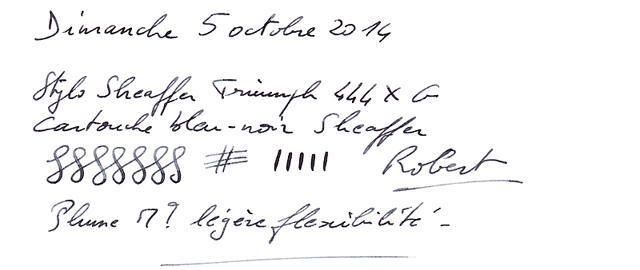 Dimanche 5 octobre 2014
Stylo Sheaffer Triumph 444 X G
Cartouche bleu-noir Sheaffer
Robert
Plume M? légère flexibilité -